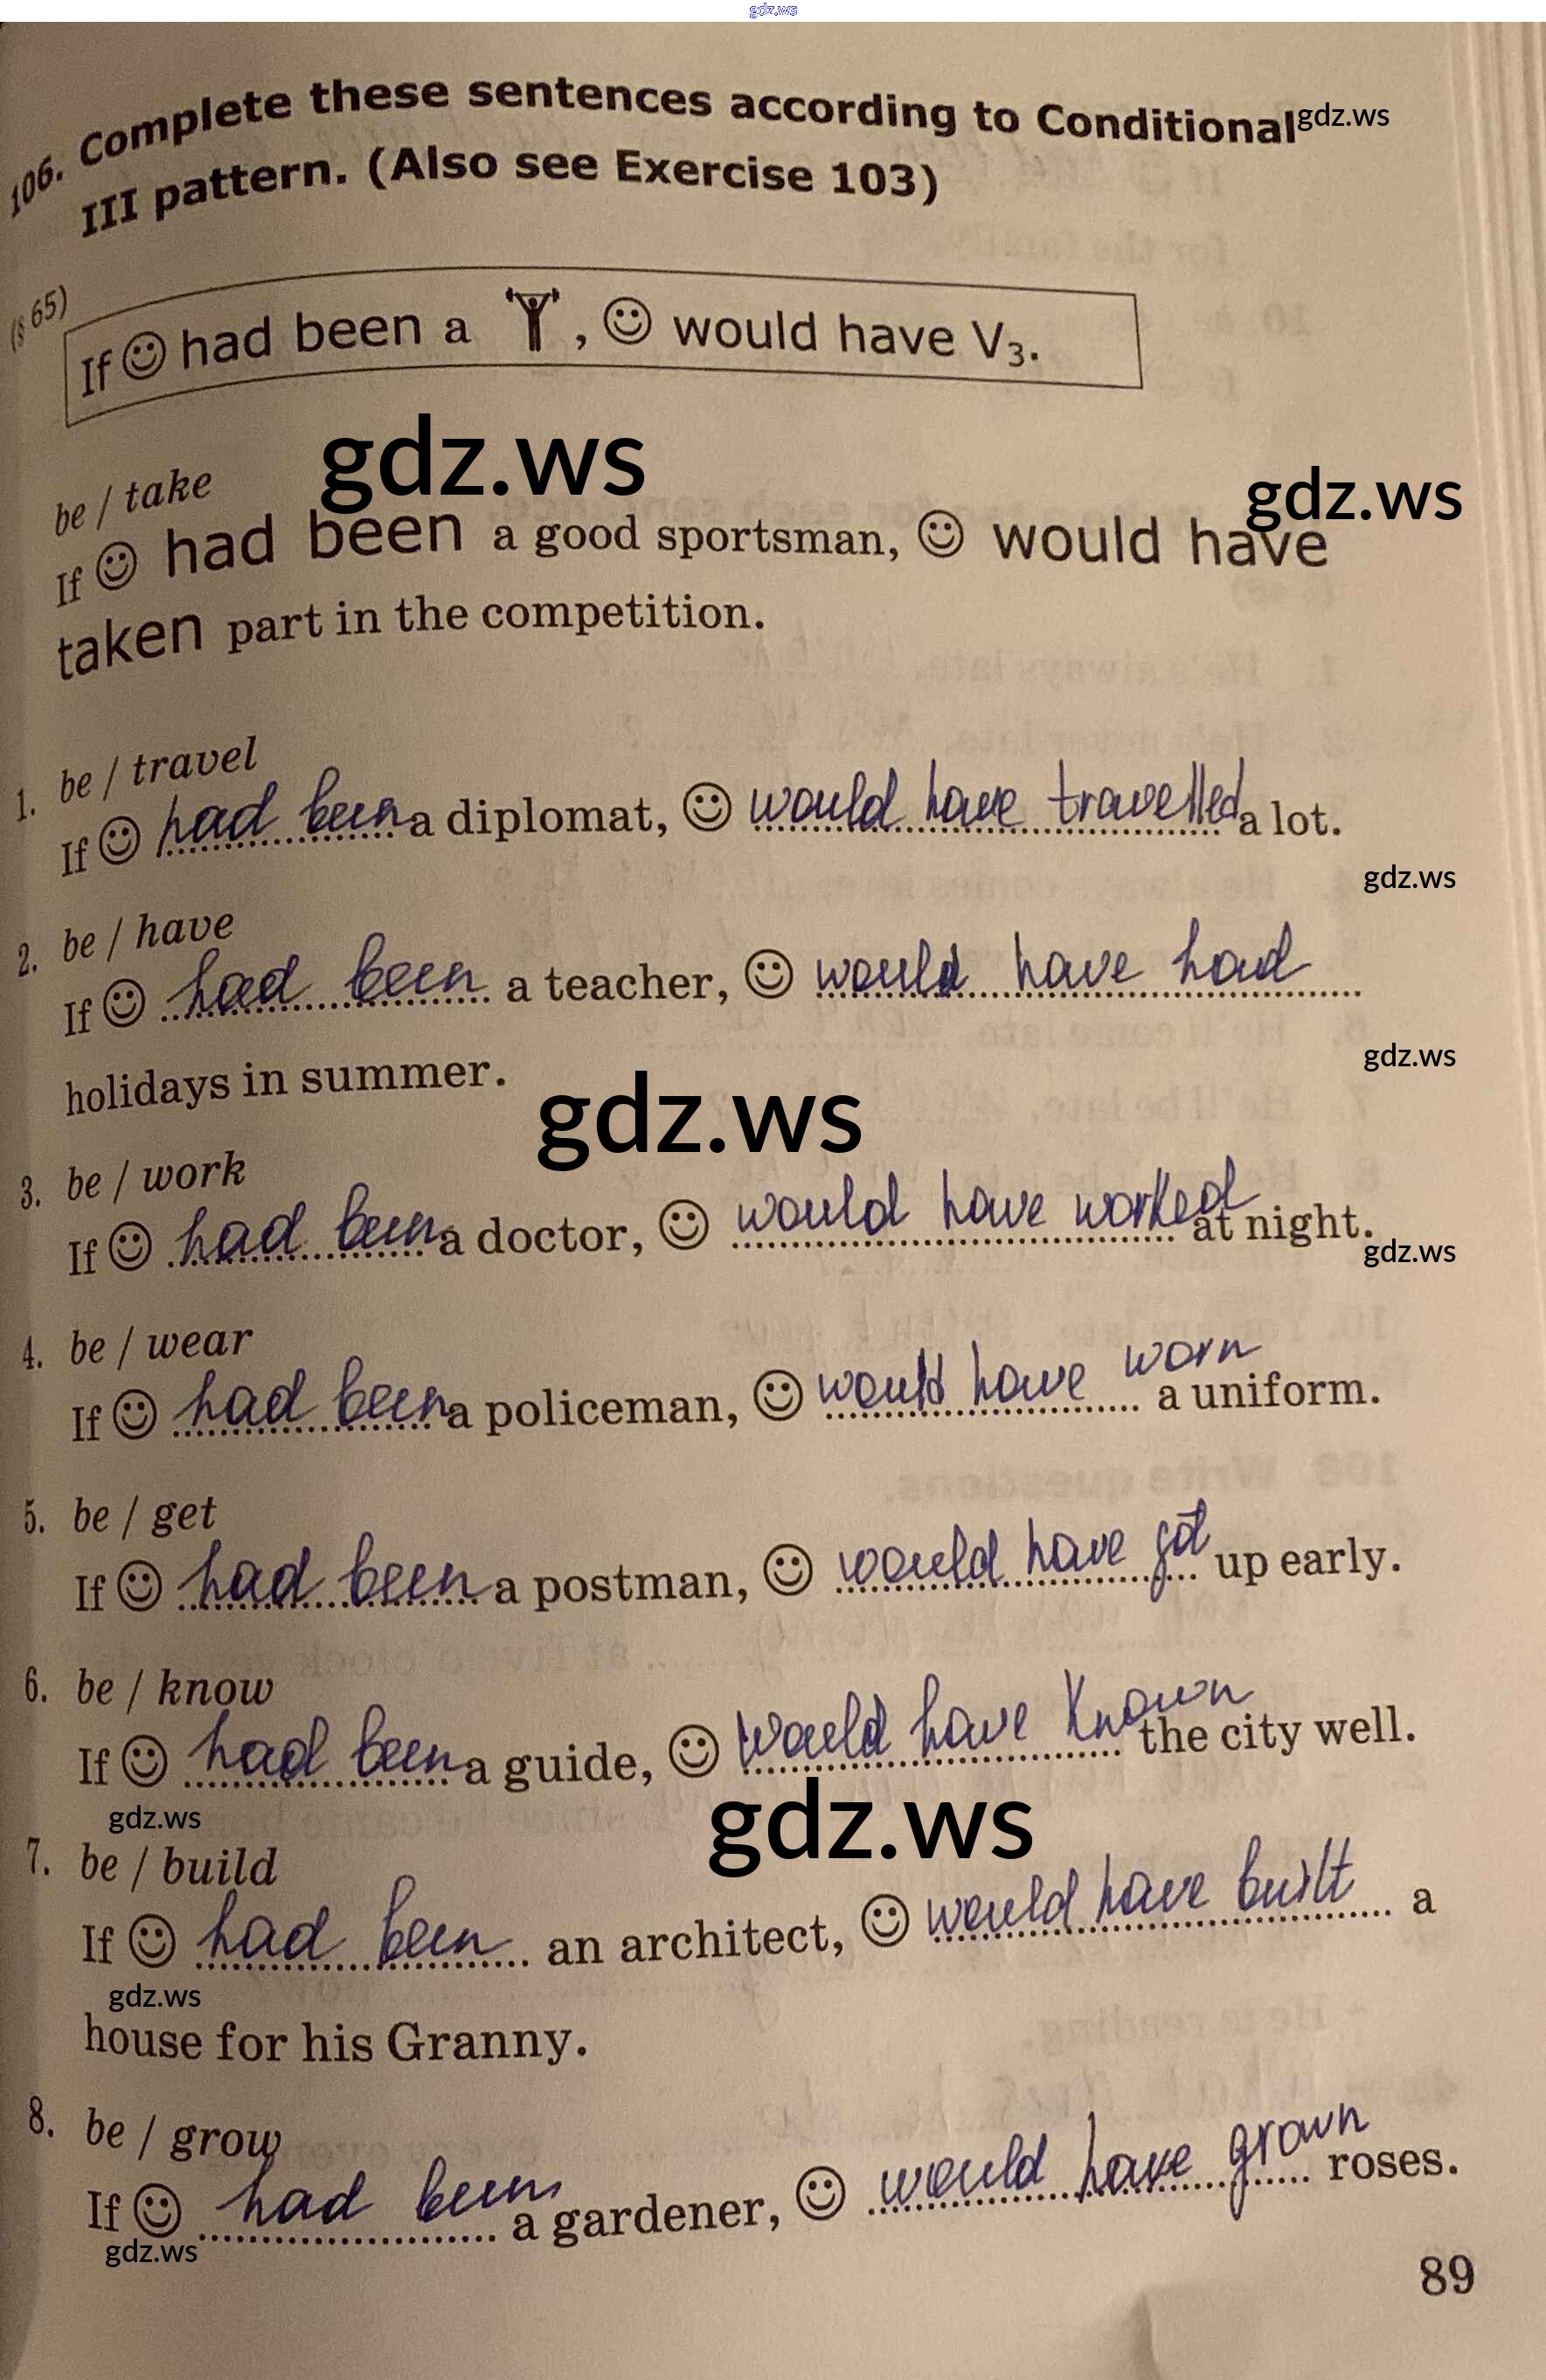 gdz.ws
106. Complete these sentences according to Conditional gdz.ws
III pattern. (Also see Exercise 103)
(§ 65)
If ☺ had been a , ☺ would have V₃.
gdz.ws
be / take
gdz.ws
If ☺ had been a good sportsman, ☺ would have
taken part in the competition.
1. be / travel
If ☺ had been a diplomat, ☺ would have travelled a lot.
gdz.ws
2. be / have
If ☺ had been a teacher, ☺ would have had
gdz.ws
holidays in summer.
gdz.ws
3. be / work
If ☺ had been a doctor, ☺ would have worked at night.
gdz.ws
4. be / wear
If ☺ had been a policeman, ☺ would have worn a uniform.
5. be / get
If ☺ had been a postman, ☺ would have got up early.
6. be / know
If ☺ had been a guide, ☺ would have known the city well.
gdz.ws
gdz.ws
7. be / build
If ☺ had been an architect, ☺ would have built a
gdz.ws
house for his Granny.
8. be / grow
If ☺ had been a gardener, ☺ would have grown roses.
gdz.ws
89